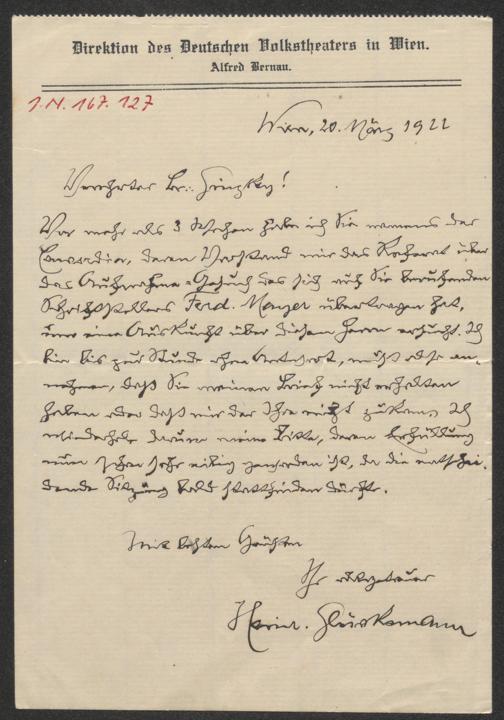 Direktion des Deutschen Volkstheaters in Wien.
Alfred Bernau.
I.N. 167.127
Wien, 20. März 1922
Verehrter Hr. Ginzkey!
Vor mehr als 3 Wochen habe ich Sie namens der
Concordia, deren Vorstand mir das Referat über
das Aufnahme-Gesuch des sich auf Sie berufenden
Schriftstellers Ferd. Mayer übertragen hat,
um eine Auskunft über diesen Herrn ersucht. Ich
bin bis zur Stunde ohne Antwort, muß also an-
nehmen, daß Sie meinen Brief nicht erhalten
haben oder daß mir der Ihre nicht zukam. Ich
wiederhole darum meine Bitte, deren Erfüllung
nun schon sehr eilig geworden ist, da die entschei-
dende Sitzung bald stattfinden dürfte.
Mit besten Grüßen
Ihr
Heinr. Glücksmann